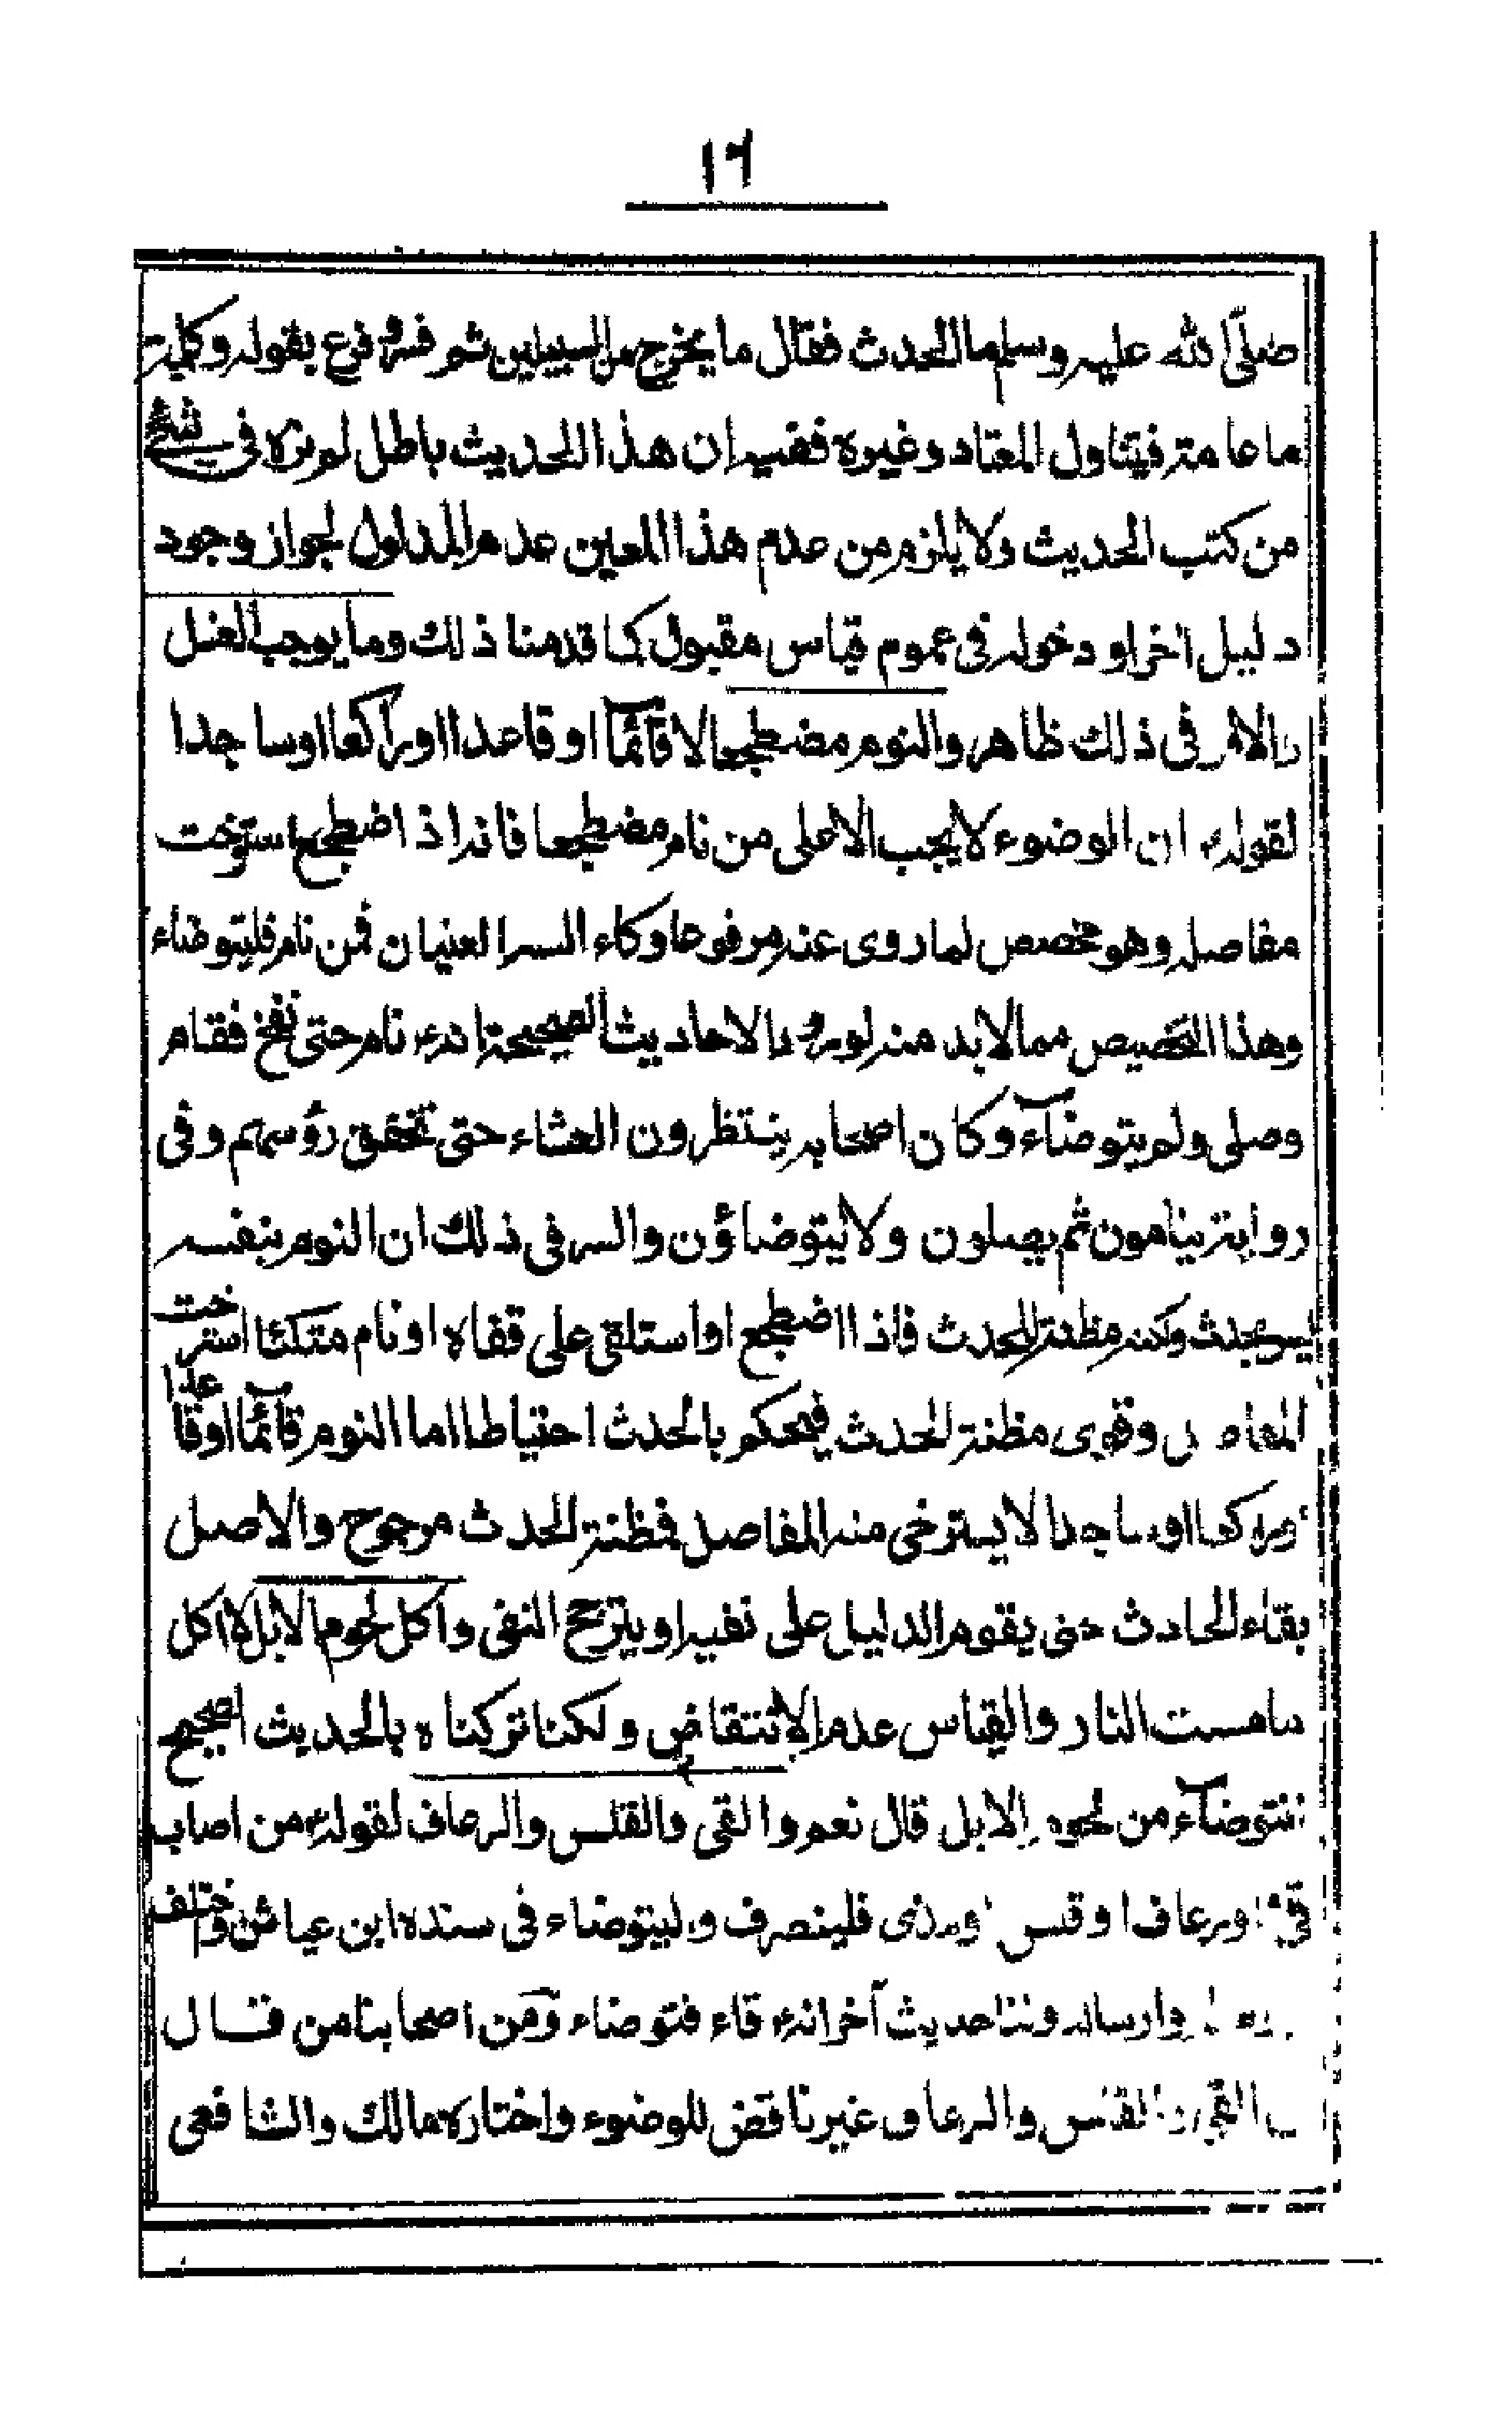 ١٦
صلى الله عليه وسلم ما الحدث فقال ما يخرج من السبيلين ثم فرع بقوله وكلمة
ما عامة فيتناول المعتاد وغيره ففيه ان هذا الحديث باطل لم نره فى
من كتب الحديث ولا يلزم من عدم هذا المعين عدم المدلول لجواز وجود
دليل اخر او دخوله فى عموم قياس مقبول كما قدمنا ذلك وما يوجب الغسل
والامر فى ذلك ظاهر والنوم مضطجعا لا قآئما او قاعدا او راكعا او ساجدا
لقولهء ان الوضوء لا يجب الا على من نام مضطجعا فانه اذ اضطجع استرخت
مفاصله وهو مخصص لما روى عنه مرفوعا وكاء السه العينان فمن نام فليتوضاء
وهذا التخصيص مما لابد منه بالاحاديث الصحيحة انهء نام حتى نفخ فقام
وصلى ولم يتوضآء وكان اصحابه ينتظرون العشاء حتى تخفق رؤسهم وفى
رواية ينامون ثم يصلون ولا يتوضاؤن والسر فى ذلك ان النوم بنفسه
ليس بحدث ولكنه مظنة الحدث فاذا اضطجع او استلقى على قفاه او نام متكئا استرخت
المفاصل وقوى مظنة الحدث فيحكم بالحدث احتياطا اما النوم قآئما او قاعدا
وراكعا او ساجدا لا يسترخى منه المفاصل فمظنة الحدث مرجوح والاصل
بقاء الحادث حتى يقوم الدليل على نفيه او يترجح النفى واكل لحوم الابل لا اكل
مامست النار والقياس عدم الانتقاض ولكنا تركناه بالحديث الصحيح
نتوضآء من لحوم الابل قال نعم والقى والقلس والرعاف لقولهء من اصاب
قئ او رعاف او قلس او مذى فلينصرف وليتوضاء فى سنده ابن عياش واختلف
وارساله ولنا حديث آخر انهء قاء فتوضاء ومن اصحابنا من قال
القئ والقلس والرعاف غير ناقض للوضوء واختاره مالك والشافعى